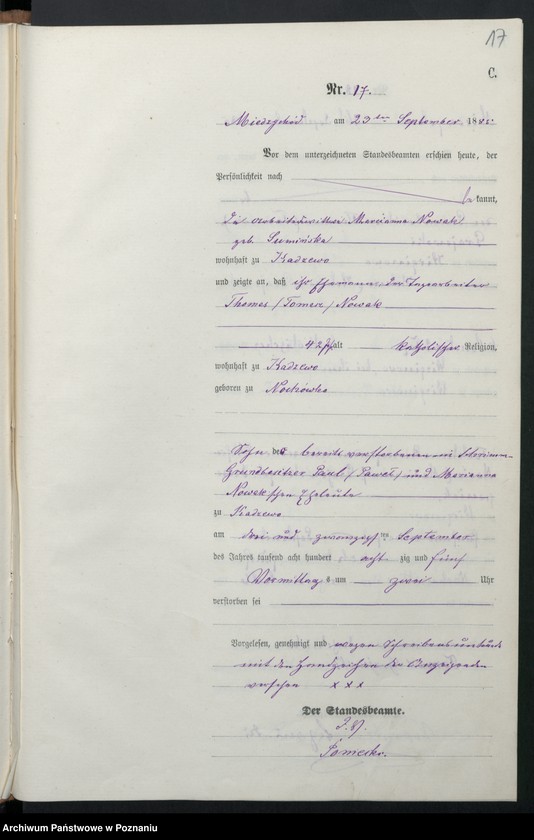 17
C.
Nr. 17.
am 23ten September 1885
Vor dem unterzeichneten Standesbeamten erschien heute, der
Persönlichkeit nach
be kannt,
die Marianna Nowak
geb.
wohnhaft zu Kadzewo
und zeigte an, daß ihr Ehemann, der Tagearbeiter
Thomas /Tomasz/ Nowak
42 J. alt katholischer Religion,
wohnhaft zu Kadzewo
geboren zu
Sohn der bereits verstorbenen
Grundbesitzer Paul /Paweł/ und Marianna
Nowak'schen Eheleute
zu Kadzewo
am drei und zwanzigsten September
des Jahres tausend acht hundert acht zig und fünf
Vormittags um zwei Uhr
verstorben sei
Vorgelesen, genehmigt und wegen Schreibensunkunde
mit den Handzeichen der Anzeigenden
versehen x x x
Der Standesbeamte.
Archiwum Państwowe w Poznaniu